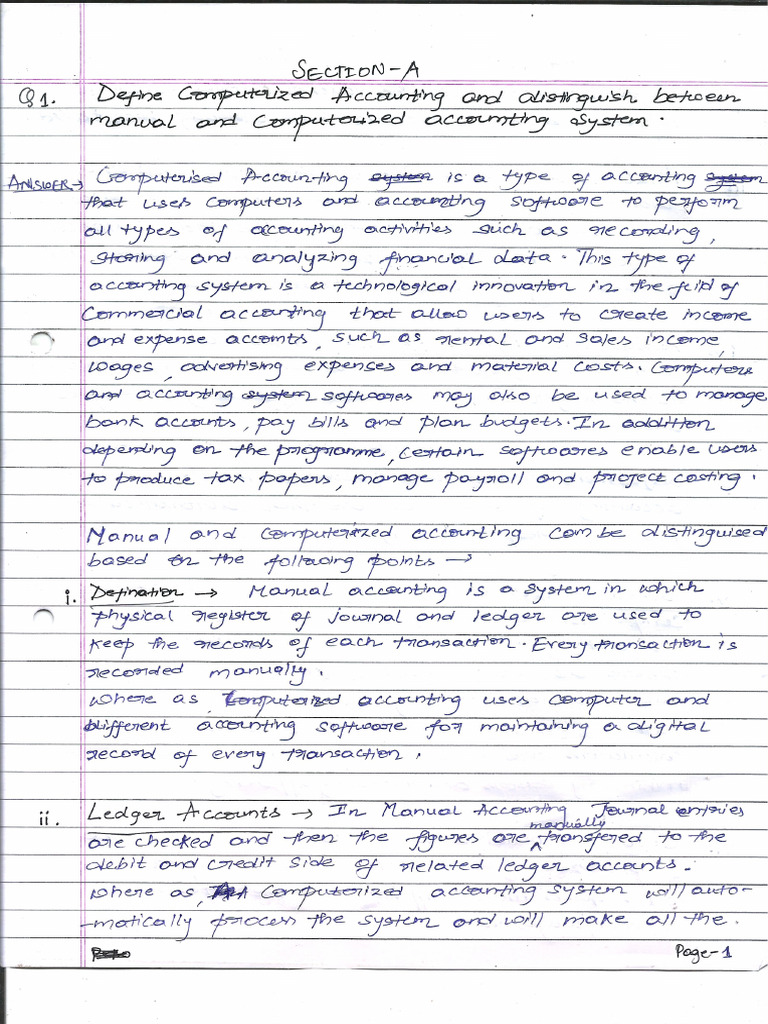 SECTION-A
Q1. Define Computerized Accounting and distinguish between
manual and Computerized accounting system.
ANSWER→ Computerised Accounting system is a type of accounting system
that uses computers and accounting software to perform
all types of accounting activities such as recording,
storing and analyzing financial data. This type of
accounting system is a technological innovation in the feild of
Commercial accounting that allow users to create income
and expense accounts, such as rental and sales income,
wages, advertising expenses and material costs. Computers
and accounting system softwares may also be used to manage
bank accounts, pay bills and plan budgets. In addition
depending on the programme, certain softwares enable users
to produce tax papers, manage payroll and project costing.
Manual and Computerized accounting can be distinguised
based on the following points →
i. Defination → Manual accounting is a system in which
physical register of journal and ledger are used to
keep the records of each transaction. Every transaction is
recorded manually.
where as, Computerized accounting uses computer and
different accounting software for maintaining a digital
record of every transaction.
ii. Ledger Accounts → In Manual Accounting Journal entries
are checked and then the figures are manually transfered to the
debit and credit side of related ledger accounts.
where as, Computerized accounting system will auto-
-matically process the system and will make all the.
Page-1